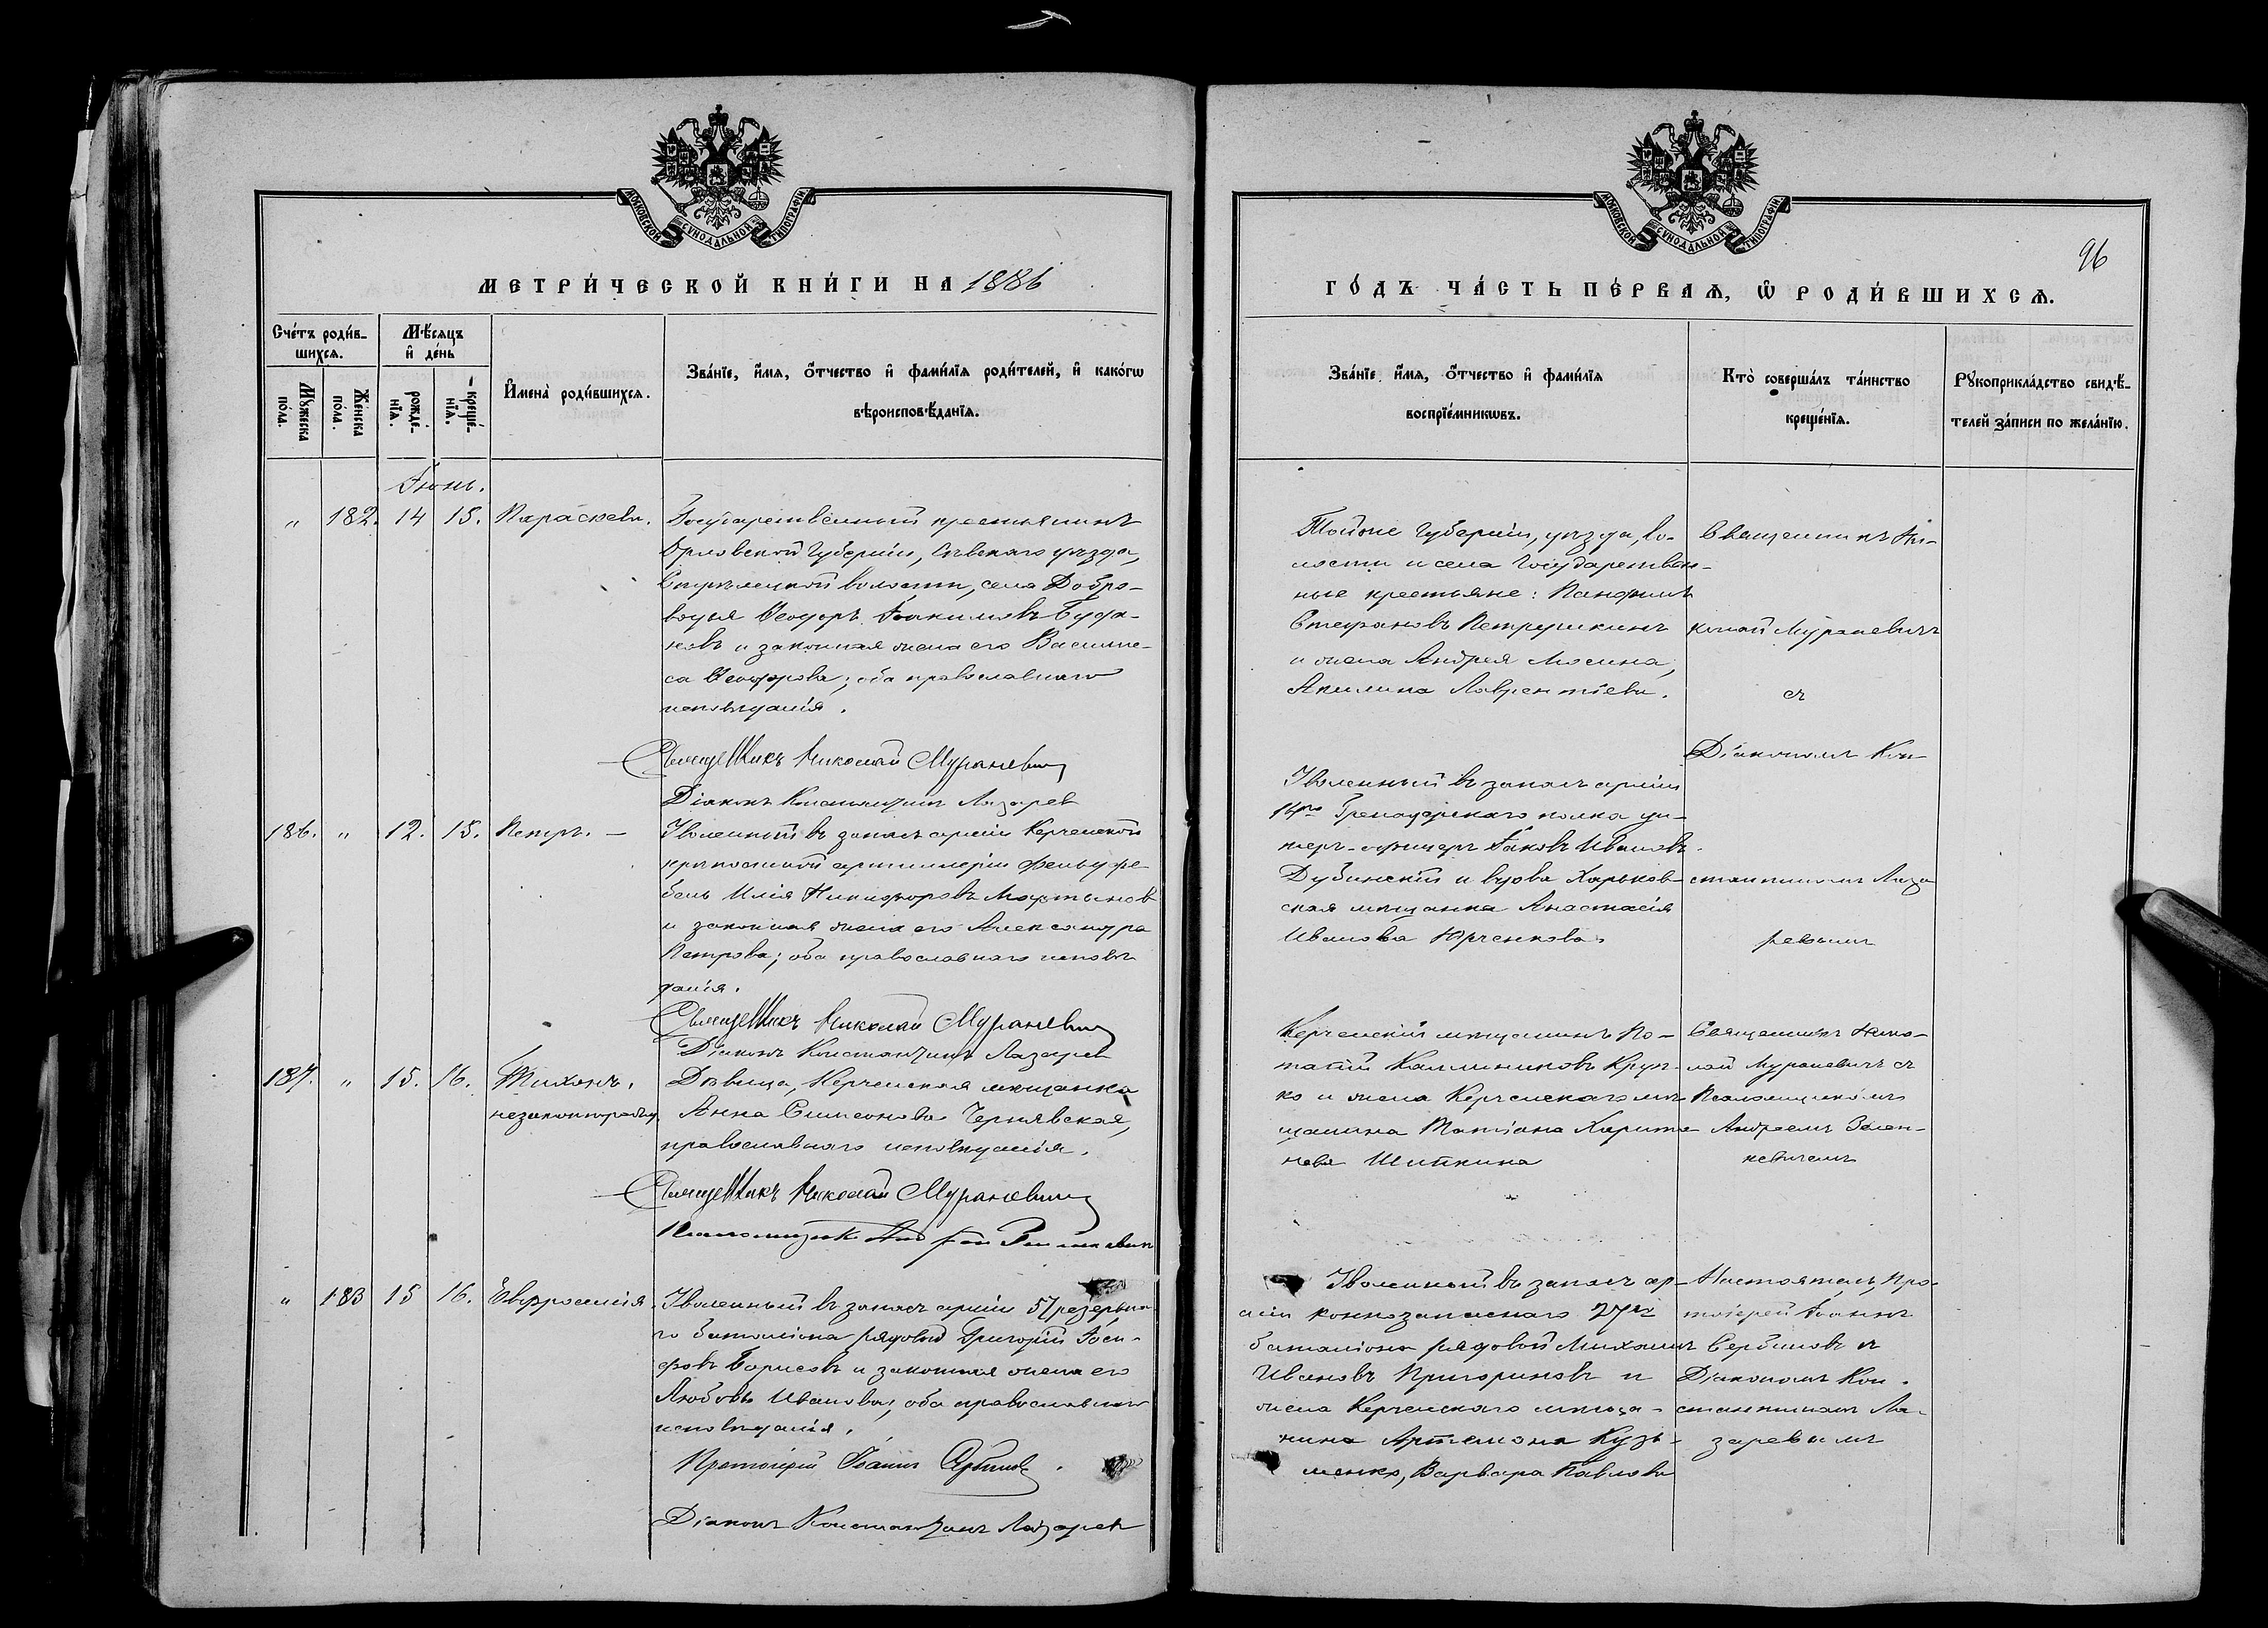 МОСКОВСКОЙ СѴНОДАЛЬНОЙ ТИПОГРАФІИ
МЕТРИ́ЧЕСКОЙ КНИ́ГИ НА 1886
Сче́тъ роди́в-
шихсѧ.
Мѣ́сѧцъ
и҆ де́нь
Мꙋ́жеска
по́ла.
Же́нска
по́ла.
рожде́-
нїѧ.
креще́-
нїѧ.
И҆мена̀ роди́вшихсѧ.
Зва́нїе, и҆́мѧ, ѻ҆́тчество и҆ фами́лїѧ роди́телей, и҆ како́гѡ
вѣроисповѣ́данїѧ.
Іюнь.
" 182. 14 15. Параскева.
Государственный крестьянинъ
Орловской Губерніи, Сѣвскаго уѣзда,
волости, села Добро-
водья Ѳеодоръ Іоакимовъ Буда-
новъ и законная жена его Васили-
са Ѳеодорова; оба православнаго
исповѣданія.
Священникъ Николай Мураневичъ
Діаконъ Константинъ Лазарев
186. " 12. 15. Петръ. —
Уволенный въ запасъ арміи Керченской
крѣпостной артиллеріи фельдфе-
бель Илія Никифоровъ Мартынов
и законная жена его Александра
Петрова; оба православнаго исповѣ
данія.
Священникъ Николай Мураневичъ
Діаконъ Константинъ Лазарев
187. " 15. 16. Тихонъ,
незаконнорожд.
Дѣвица, Керченская мѣщанка
Анна Симеонова Чернявская,
православнаго исповѣданія.
Священникъ Николай Мураневичъ
Псаломщикъ Андрей
" 183 15 16. Евфросинія.
Уволенный въ запасъ арміи 57 резервна
го баталіона рядовой Григорій Іоси-
фовъ Борисовъ и законная жена его
Любовь Иванова; оба православнаго
исповѣданія.
Протоіерей Іоаннъ Сербиновъ
Діаконъ Константинъ Лазарев
МОСКОВСКОЙ СѴНОДАЛЬНОЙ ТИПОГРАФІИ
96
ГО́ДЪ ЧА́СТЬ ПЕ́РВАѦ, Ѡ҆ РОДИ́ВШИХСѦ.
Зва́нїе и҆́мѧ, ѻ҆́тчество и҆ фами́лїѧ
воспрїе́мникѡвъ.
Кто̀ соверша́лъ та́инство
креще́нїѧ.
Рꙋкоприкла́дство свидѣ́-
телей за́писи по жела́нїю.
Тойже Губерніи, уѣзда, во-
лости и села Государствен-
ные крестьяне: Панфилъ
Стефановъ Петрушкинъ
и жена Андрея Мосина,
Акилина Лаврентіева.
Священникъ Ни-
колай Мураневичъ
съ
Діакономъ Кон-
стантиномъ Лаза
ревымъ
Уволенный въ запасъ арміи
Гренадерскаго полка ун-
теръ-офицеръ Іаковъ Ивановъ
Дубинскій и вдова Харьков-
ская мѣщанка Анастасія
Иванова Юрченкова.
Керченскій мѣщанинъ По-
тапій Каллиниковъ Круп-
ко и жена Керченскаго мѣ-
щанина Татіана Харито-
нова Шипкина
Священникъ Нико-
лай Мураневичъ съ
Псаломщикомъ
Андреемъ Зелен-
кевичемъ
Уволенный въ запасъ ар-
міи коннозапаснаго 27го
баталіона рядовой Михаилъ
Ивановъ Пригориновъ и
жена Керченскаго мѣща-
нина Артемона Кузь-
менко, Варвара Павлова
Настоятель, Про-
тоіерей Іоаннъ
Сербиновъ съ
Діакономъ Кон-
стантиномъ Ла-
заревымъ